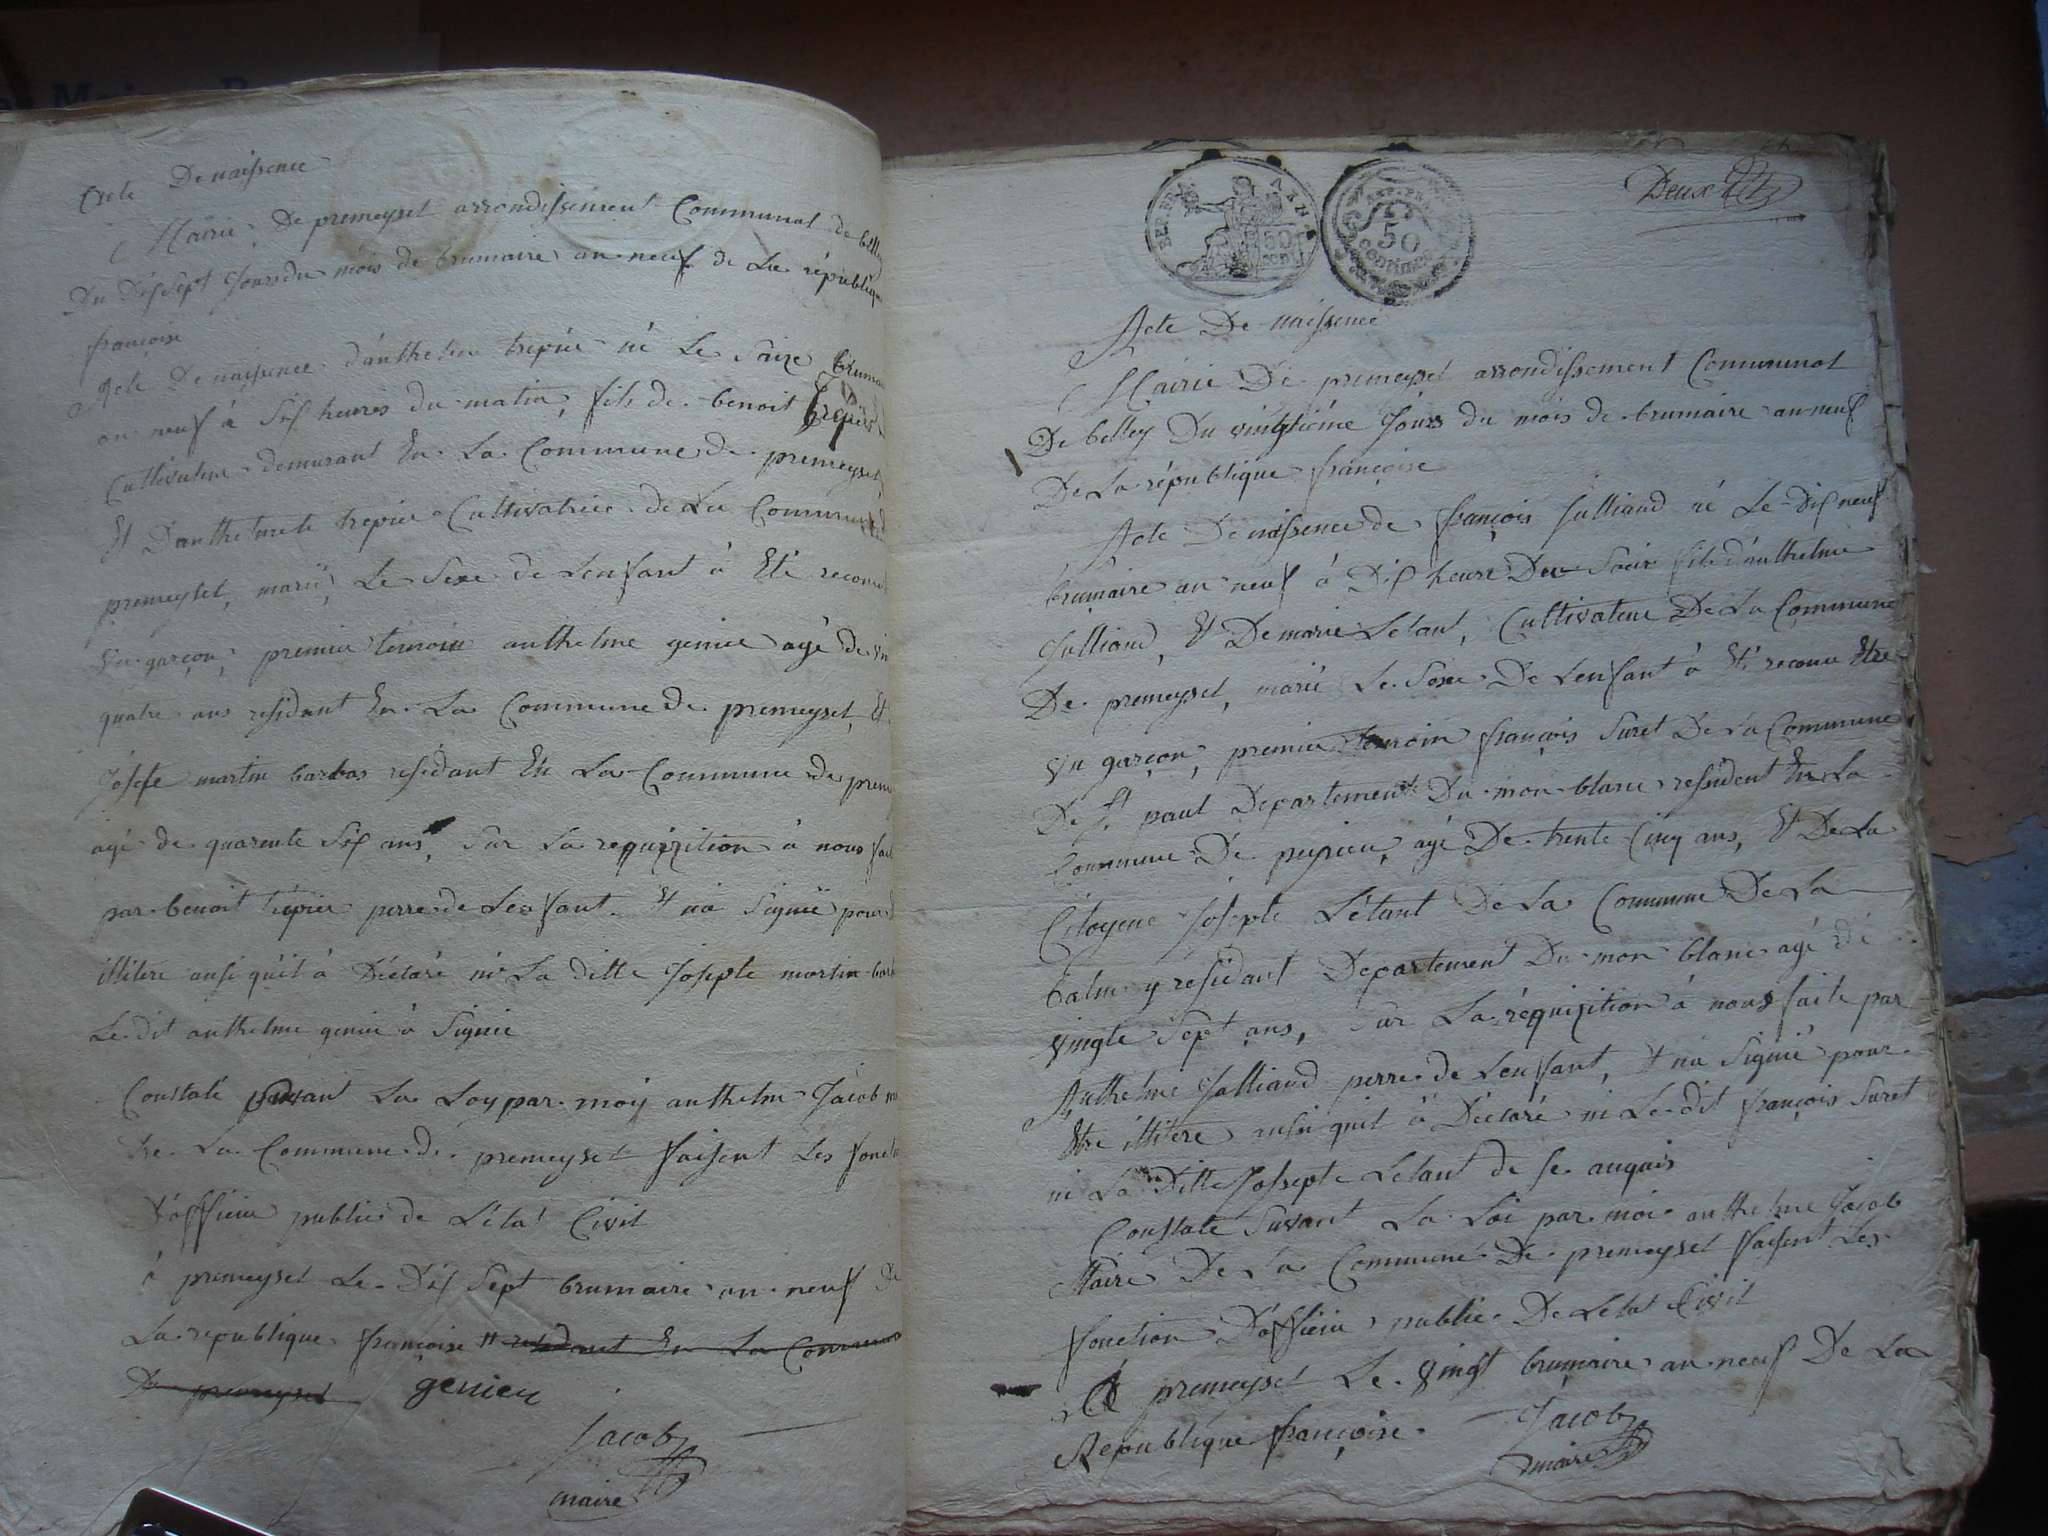 Acte De naissence
Mairie De premeyset arrondissement Communal de belley
Du Dis Sept Jours du mois de brumaire an neuf de La républiq
françoise
Acte De naissence d'anthelme trepier né Le Saize bruma
an neuf à Dis heures du matin, fils de benoit trepier
Cultivateur demurant En La Commune de premeyset
Et D'anthelmete trepier Cultivatrice de La Commune d
premeyset, marié, Le Sexe de Lenfant à Eté reconu
Un garçon, premier temoin anthelme genieu agé de vin
quatre ans residant En La Commune de premeyset, Et
Josepte martin barbas residant En La Commune de prem
agé de quarente Six ans, Sur La requizition à nous fait
par benoit trepier perre de Lenfant. Et n'a Signié pour
illitere ansi qu'il à Déclaré ni La ditte Josepte martin barb
Le dit anthelme genieu à Signié
Constaté suvant La Loy par moy anthelme Jacob m
re La Commune de premeyset faisent Les fonct
D'officier public de L'éta' Civil
à premeyset Le Dis Sept brumaire an neuf De
La republique françoise residant En La Commune
De premeyset genieu
Jacob
maire
REP. FRA. 50 CENT.
50 Centimes
Deux
Acte De naissence
Mairie De premeyset arrondissement Communal
De belley Du vingtiéme Jours du mois de brumaire an neuf
De La république françoise
Acte De naissence de françois Julliand né Le Dis neuf
brumaire an neuf à Dis heure Du Soir fils d'anthelme
Julliand, Et De marie Letant, Cultivateur De La Commune
De premeyset, marié Le Sexe De Lenfant à Eté reconu Etre
Un garçon, premier temoin françois Suret De La Commune
De St paul Departement Du mon blanc resident En La
Commune De peyrieu, agé De trente Cinq ans, Et De La
Citoyene Josepte Létant De La Commune De La
balm y residant Departement Du mon blanc agé de
vingte Sept ans, Sur La réquizition à nous faite par
Anthelme Julliand perre de Lenfant, Et n'a Signié pour
Etre illitere ansi quil à Déclaré ni Le dit françois Suret
ni La Ditte Josepte Letant de ce anquis
Constate Suvant La Loi par moi anthelme Jacob
Maire De La Commune De premeyset faisent Les
fonction D'officier public De Letat Civil
A premeyset Le vingt brumaire an neuf De La
République françoise. Jacob
maire